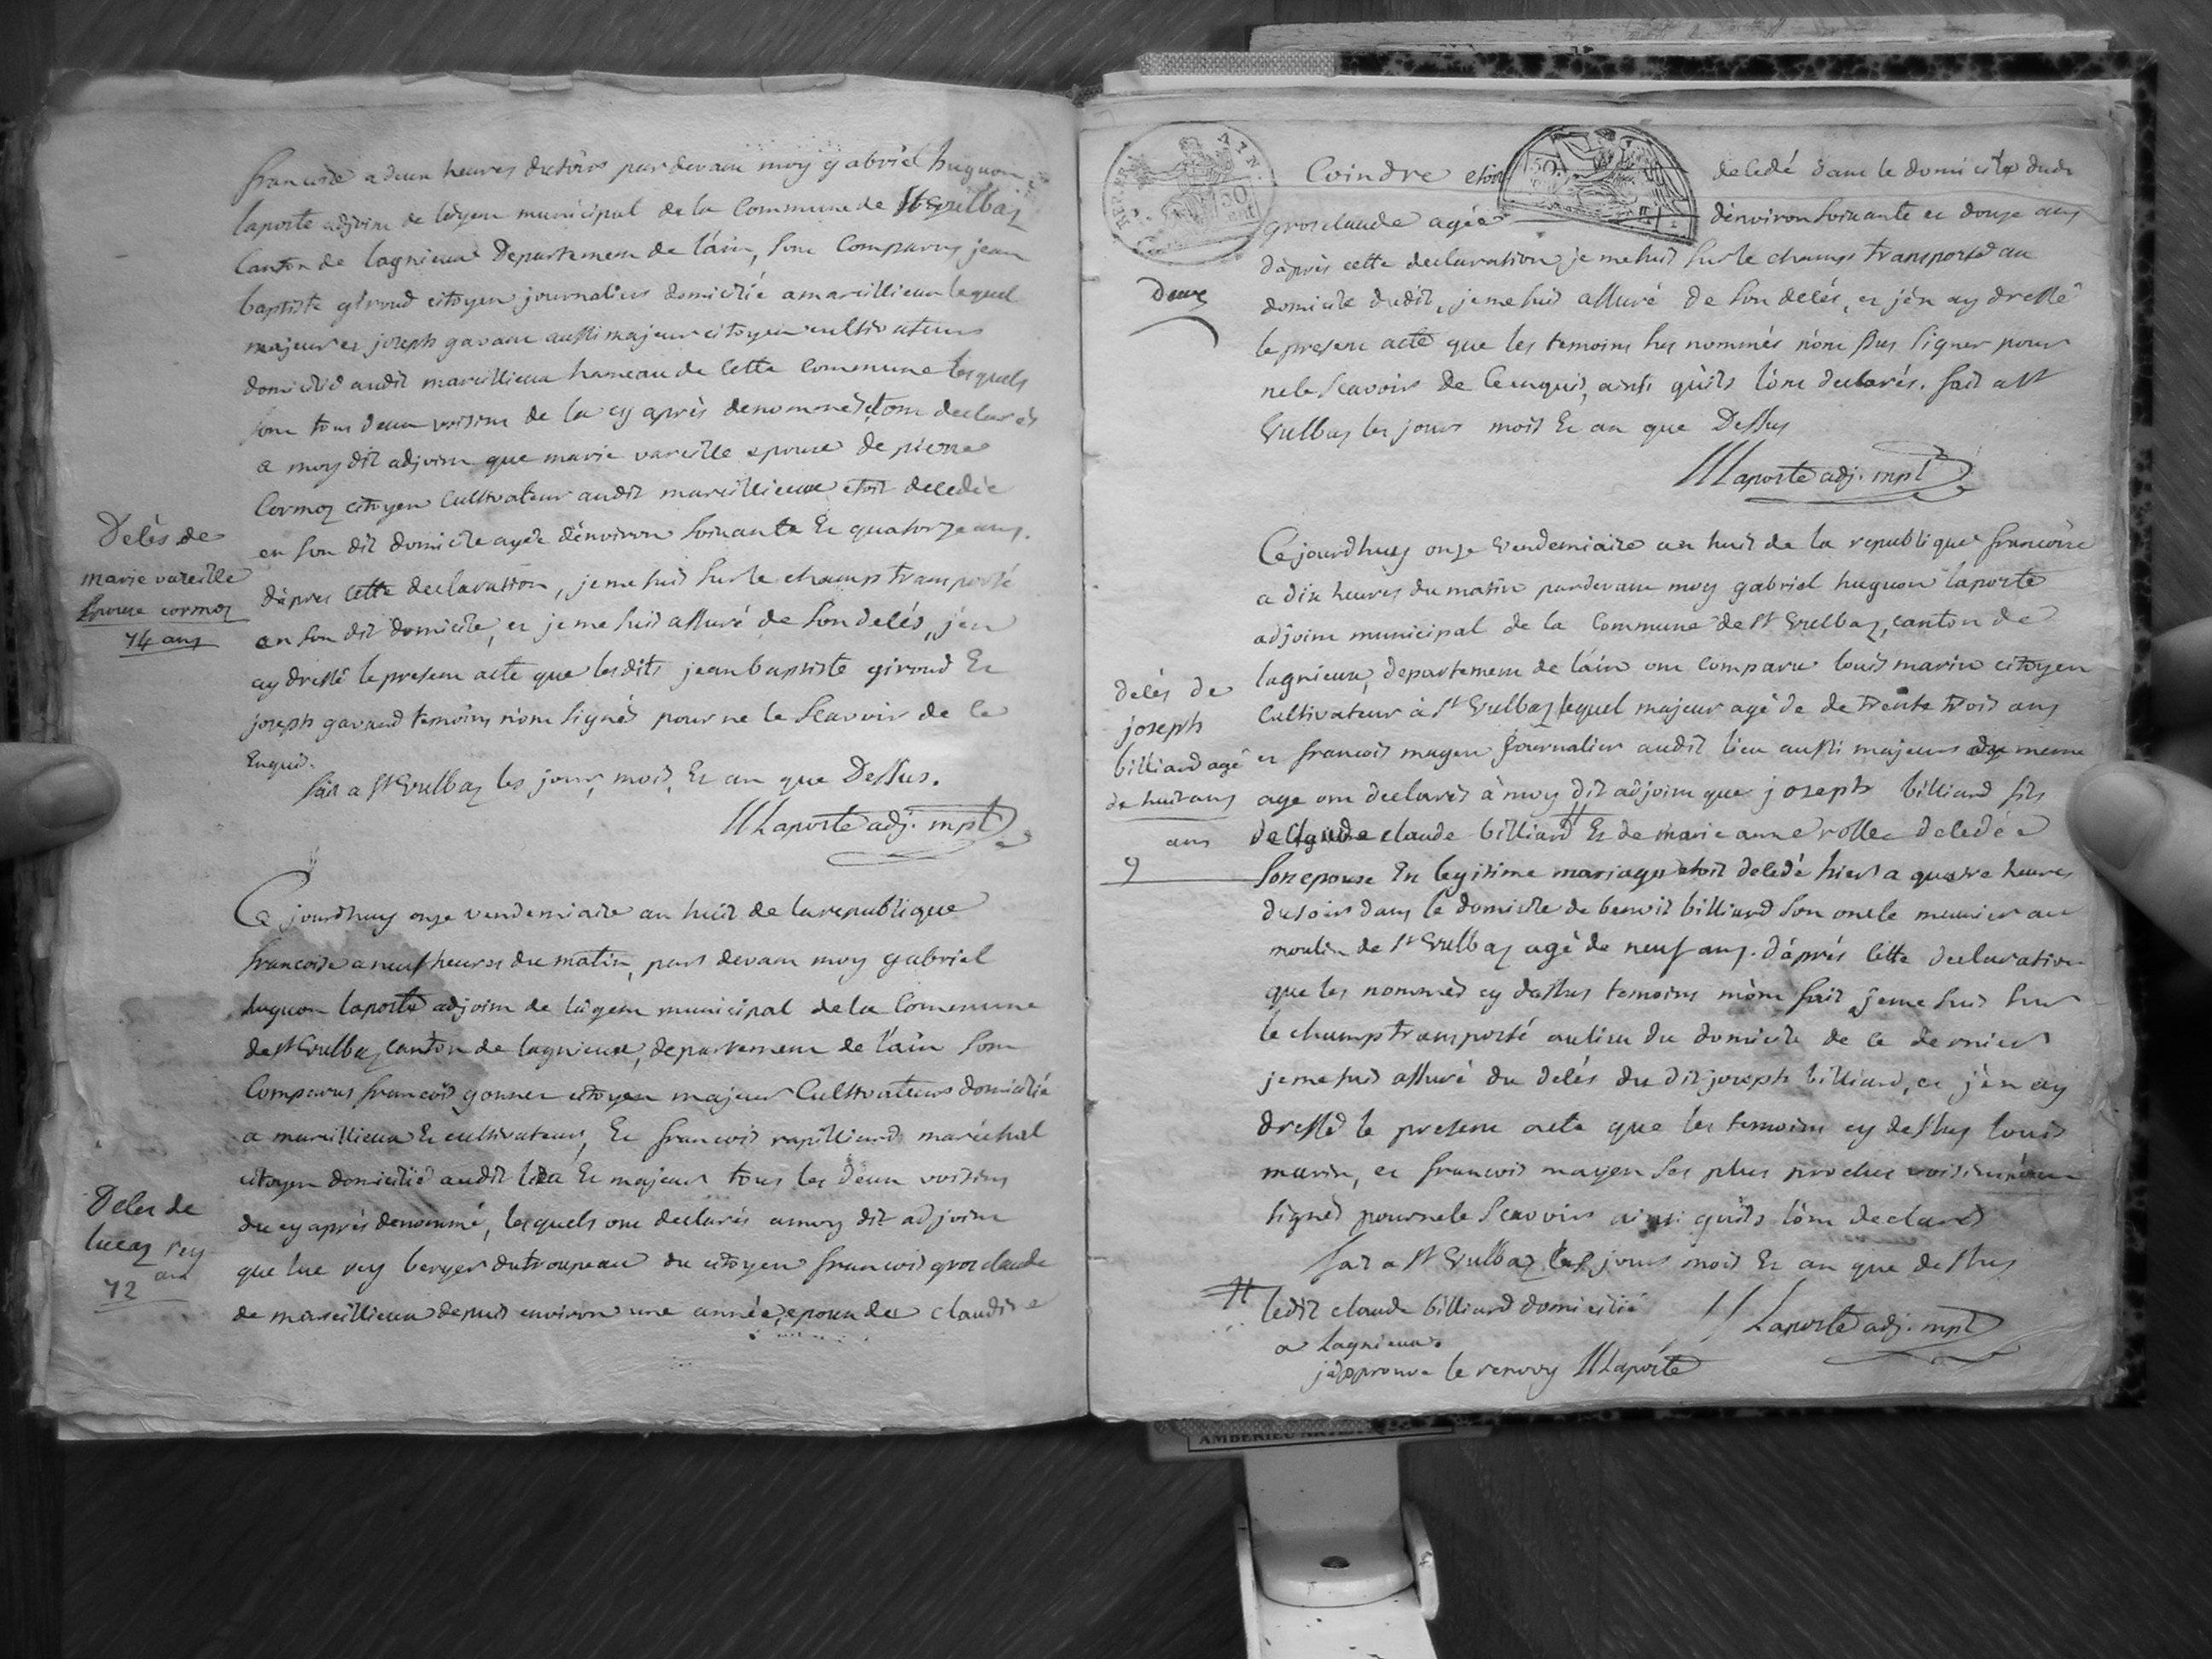 francoise a deux heures du soir par devant moy gabriel huguon
laporte adjoint de lagent municipal de la Commune de St Vulbaz
Canton de lagnieux Departement de l'ain, sont Comparus jean
baptiste giroud citoyen journalier domicilié a marcillieux lequel
majeur et joseph gavant aussi majeur citoyen cultivateur
domicilié audit marcillieux hameau de cette commune lesquels
sont tous deux voisins de la cy après denommée, et ont declarés
a moy dit adjoint que marie vareille epouse de pierre
Cormoz citoyen Cultivateur audit marcillieux etoit decedée
en son dit domicile agée d'environ soixante Et quatorze ans.
d'apres cette declaration, je me suis sur le champ transporté
en son dit domicile, et je me suis assuré de son decés, j'en
ay dressé le present acte que lesdits jean baptiste giroud Et
joseph gavand temoins n'ont signés pour ne le scavoir de ce
Enquis.
fait a St Vulbaz les jour, mois, Et an que Dessus.
HLaporte adj. mpl
Decès de
marie vareille
Epouse cormoz
74 ans
Ce jourdhuy onze vendemiaire an huit de la republique
francoise a neuf heures du matin, par devant moy gabriel
huguon laporte adjoint de lagent municipal de la Commune
de St Vulbaz canton de lagnieux, departement de l'ain sont
Comparus francois gonnet citoyen majeur Cultivateur domicilié
a marcillieux Et cultivateur, Et francois rapilliard maréchal
citoyen domicilié audit lieu Et majeur tous les deux voisins
du cy après denommé, lesquels ont declarés a moy dit adjoint
que luc rey berger du troupeau du citoyen francois grosclaude
de marcillieux depuis environ une année, epoux de claudine
Deces de
lucas rey
72 ans
Coindre etoit decedé dans le domicile dudit
grosclaude agée d'environ soixante et douze ans
d'après cette declaration je me suis sur le champ transporté au
domicile dudit, je me suis assuré de son decés, et j'en ay dressé
le present acte que les temoins sus nommés n'ont pus signer pour
ne le scavoir de ce enquis, ainsi qu'ils l'ont declarés. fait a St
Vulbaz les jours mois Et an que Dessus
HLaporte adj. mpl
Deux
Ce jourdhuy onze Vendemiaire an huit de la republique francoise
a dix heures du matin pardevant moy gabriel huguon laporte
adjoint municipal de la Commune de St Vulbaz, canton de
lagnieux, departement de l'ain ont comparu louis marin citoyen
Cultivateur à St Vulbaz lequel majeur agé de de trente trois ans
et francois mayen journalier audit lieu aussi majeur du meme
age ont declarés à moy dit adjoint que joseph billiard fils
de Claude claude billiard Et de marie anne rollet decedée
son epouse En legitime mariage etoit decedé hier a quatre heures
du soir dans le domicile de benoit billiard son oncle meunier au
moulin de St Vulbaz agé de neuf ans. d'après cette declaration
que les nommés cy dessus temoins m'ont fait, je me suis sur
le champ transporté au lieu du domicile de ce dernier
je me suis assuré du decés du dit joseph billiard, et j'en ay
dressé le present acte que les temoins cy dessus louis
marin, et francois mayen ses plus proches voisins n'ont
signés pour ne le scavoir ainsi qu'ils l'ont declarés
fait a St Vulbaz les jours mois Et an que dessus
H Laporte adj. mpl
ledit claude billiard domicilié
a lagnieux.
j'approuve le renvoy HLaporte
decès de
joseph
billiard agé
de huit ans
9 ans